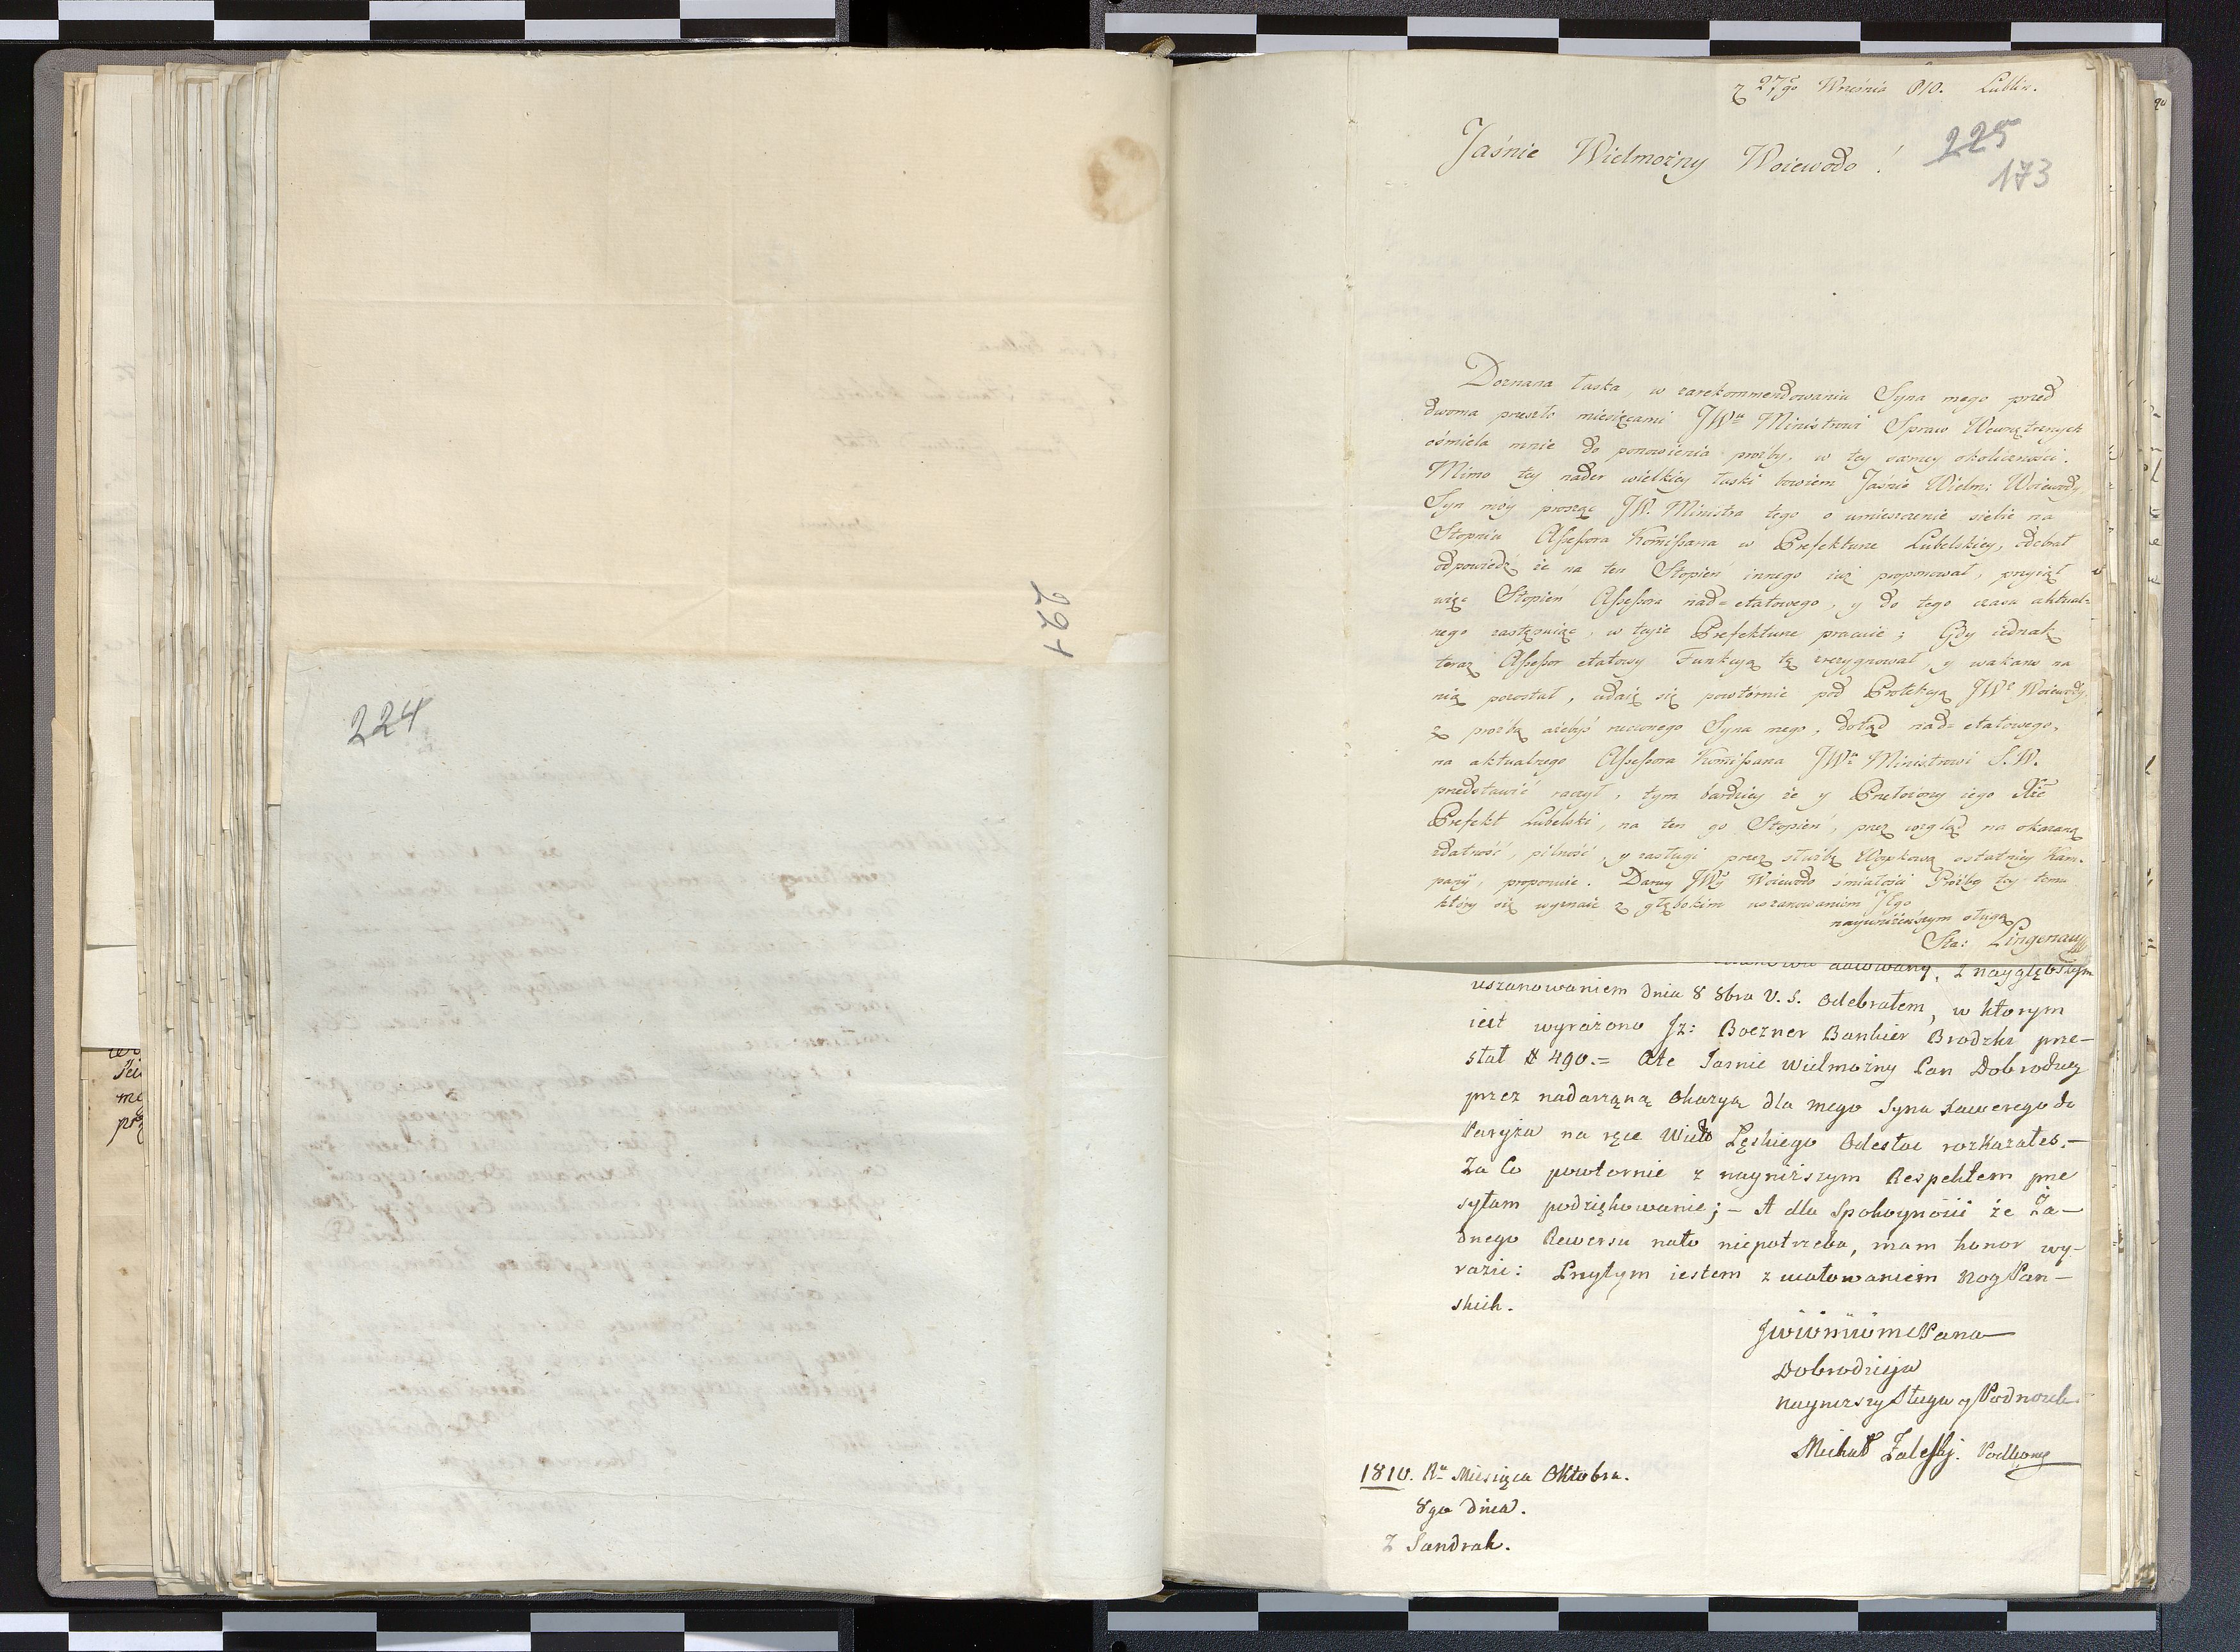 221
224
z 27go Września 810. Lublin.
225
173
Jaśnie Wielmożny Woiewodo!
Doznana łaska, w zarekommendowaniu Syna mego przed
dwoma przeszło miesięcami JWu Ministrowi Spraw Wewnętrznych
ośmiela mnie do ponowienia prozby, w tey samey okoliczności.
Mimo tey nader wielkiey łaski bowiem Jaśnie Wielm: Woiewody
Syn móy prosząc JW. Ministra tego o umieszczenie siebie na
Stopniu Assessora Kommissarza w Prefekturze Lubelskiey, odebrał
odpowiedź że na ten Stopień innego iuż proponował, przyiął
więc Stopień Assessora nad=etatowego, y do tego czasu aktual=
nego zastępuiąc, w teyże Prefekturze pracuie; Gdy iednak
teraz Assessor etatowy Funkcyą tę zrezygnował, y wakans na
nią pozostał, udaię się powtórnie pod Protekcyą JWo Woiewody,
z prozbą ażebyś rzeczonego Syna mego, dotąd nad=etatowego,
na aktualnego Assessora Kommissarza JWu Ministrowi S.W.
przedstawić raczył, tym bardziey że y Przełożony iego
Prefekt Lubelski, na ten go Stopień, przez wzgląd na okazaną
zdatność, pilność, y zasługi przez służbę Woyskową ostatniey Kam-
panij, proponuie. Daruy JWy Woiewodo śmiałości Prośby tey temu
który się wyznaie z głębokim uszanowaniem Jego
nayuniżeńszym sługą
Sta: Lingenau
z naygłębszym
uszanowaniem dnia 8 8bra V. S. Odebrałem, w którym
iest wyrażono Jz: Boezner Bankier Brodzki prze-
stał # 490.= Ale Jasnie Wielmożny Pan Dobrodziey
przez nadarzaną Okazyą dla mego Syna Xawerego do
Paryża na ręce Łęskiego Odesłac rozkazałeś.-
Za Co powtornie z nayniższym Respektem prze
syłam podziękowanie; - A dla Spokoyności że Ża-
dnego Rewersu nato niepotrzeba, mam honor wy-
razić: Przytym iestem z ucałowaniem Nog Pan-
skich.
Dobrodzieja
Nayniższy Sługa y Podnożek
Michał Zaleski.
1810. Ru Miesiąca Oktobra.
8go Dnia.
Z Sandrak.